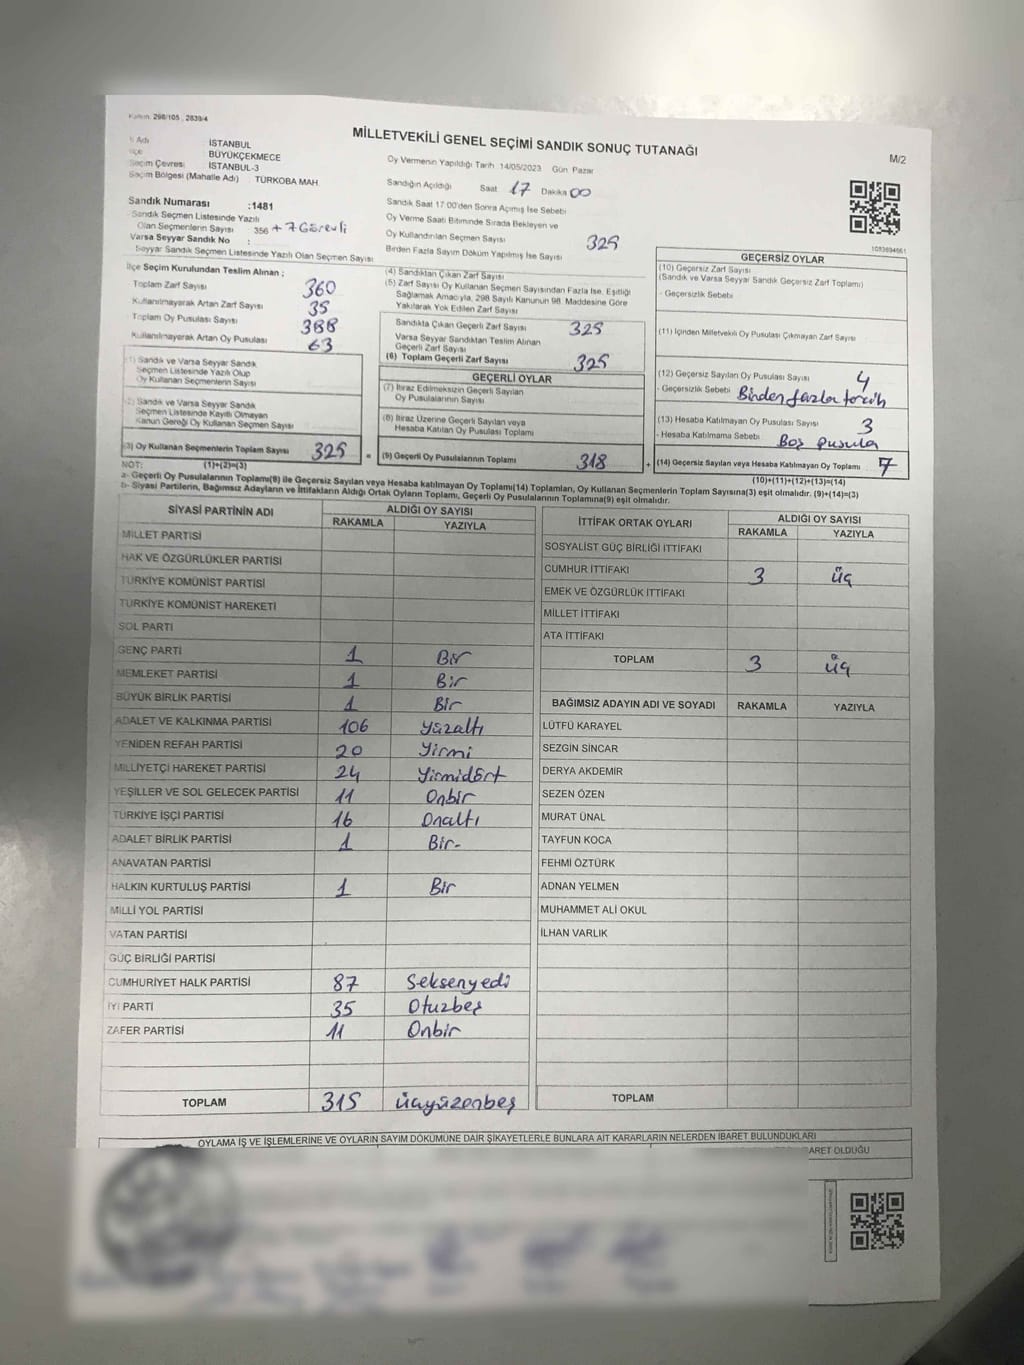 Kanun: 298/105 , 2839/4
MİLLETVEKİLİ GENEL SEÇİMİ SANDIK SONUÇ TUTANAĞI
M/2
İl Adı İSTANBUL
İlçe BÜYÜKÇEKMECE
Seçim Çevresi İSTANBUL-3
Seçim Bölgesi (Mahalle Adı) TÜRKOBA MAH
Sandık Numarası :1481
Sandık Seçmen Listesinde Yazılı
Olan Seçmenlerin Sayısı 356 + 7 Görevli
Varsa Seyyar Sandık No :
Seyyar Sandık Seçmen Listesinde Yazılı Olan Seçmen Sayısı
Oy Vermenin Yapıldığı Tarih 14/05/2023 Gün Pazar
Sandığın Açıldığı Saat 17 Dakika 00
Sandık Saat 17:00'den Sonra Açımış İse Sebebi
Oy Verme Saati Bitiminde Sırada Bekleyen ve
Oy Kullandırılan Seçmen Sayısı 325
Birden Fazla Sayım Döküm Yapılmış İse Sayısı
1093694661
İlçe Seçim Kurulundan Teslim Alınan ;
Toplam Zarf Sayısı 360
Kullanılmayarak Artan Zarf Sayısı 35
Toplam Oy Pusulası Sayısı 388
Kullanılmayarak Artan Oy Pusulası 63
(1) Sandık ve Varsa Seyyar Sandık
Seçmen Listesinde Yazılı Olup
Oy Kullanan Seçmenlerin Sayısı
(2) Sandık ve Varsa Seyyar Sandık
Seçmen Listesinde Kayıtlı Olmayan
Kanun Gereği Oy Kullanan Seçmen Sayısı
(3) Oy Kullanan Seçmenlerin Toplam Sayısı 325
(4) Sandıktan Çıkan Zarf Sayısı
(5) Zarf Sayısı Oy Kullanan Seçmen Sayısından Fazla İse, Eşitliği
Sağlamak Amacıyla, 298 Sayılı Kanunun 98. Maddesine Göre
Yakılarak Yok Edilen Zarf Sayısı
Sandıkta Çıkan Geçerli Zarf Sayısı 325
Varsa Seyyar Sandıktan Teslim Alınan
Geçerli Zarf Sayısı
(6) Toplam Geçerli Zarf Sayısı 325
GEÇERLİ OYLAR
(7) İtiraz Edilmeksizin Geçerli Sayılan
Oy Pusulalarının Sayısı
(8) İtiraz Üzerine Geçerli Sayılan veya
Hesaba Katılan Oy Pusulası Toplamı
= (9) Geçerli Oy Pusulalarının Toplamı 318
GEÇERSİZ OYLAR
(10) Geçersiz Zarf Sayısı
(Sandık ve Varsa Seyyar Sandık Geçersiz Zarf Toplamı)
- Geçersizlik Sebebi
(11) İçinden Milletvekili Oy Pusulası Çıkmayan Zarf Sayısı
(12) Geçersiz Sayılan Oy Pusulası Sayısı 4
- Geçersizlik Sebebi Birden fazla tercih
(13) Hesaba Katılmayan Oy Pusulası Sayısı 3
- Hesaba Katılmama Sebebi Boş pusula
+ (14) Geçersiz Sayılan veya Hesaba Katılmayan Oy Toplamı 7
NOT: (1)+(2)=(3)
(10)+(11)+(12)+(13)=(14)
a- Geçerli Oy Pusulalarının Toplamı(9) ile Geçersiz Sayılan veya Hesaba katılmayan Oy Toplamı(14) Toplamları, Oy Kullanan Seçmenlerin Toplam Sayısına(3) eşit olmalıdır. (9)+(14)=(3)
b- Siyasi Partilerin, Bağımsız Adayların ve İttifakların Aldığı Ortak Oyların Toplamı, Geçerli Oy Pusulalarının Toplamına(9) eşit olmalıdır.
SİYASİ PARTİNİN ADI ALDIĞI OY SAYISI
RAKAMLA YAZIYLA
MİLLET PARTİSİ
HAK VE ÖZGÜRLÜKLER PARTİSİ
TÜRKİYE KOMÜNİST PARTİSİ
TÜRKİYE KOMÜNİST HAREKETİ
SOL PARTİ
GENÇ PARTİ 1 Bir
MEMLEKET PARTİSİ 1 Bir
BÜYÜK BİRLİK PARTİSİ 1 Bir
ADALET VE KALKINMA PARTİSİ 106 Yüzaltı
YENİDEN REFAH PARTİSİ 20 Yirmi
MİLLİYETÇİ HAREKET PARTİSİ 24 Yirmidört
YEŞİLLER VE SOL GELECEK PARTİSİ 11 Onbir
TÜRKİYE İŞÇİ PARTİSİ 16 Onaltı
ADALET BİRLİK PARTİSİ 1 Bir-
ANAVATAN PARTİSİ
HALKIN KURTULUŞ PARTİSİ 1 Bir
MİLLİ YOL PARTİSİ
VATAN PARTİSİ
GÜÇ BİRLİĞİ PARTİSİ
CUMHURİYET HALK PARTİSİ 87 Seksenyedi
İYİ PARTİ 35 Otuzbeş
ZAFER PARTİSİ 11 Onbir
TOPLAM 315 üçyüzonbeş
İTTİFAK ORTAK OYLARI ALDIĞI OY SAYISI
RAKAMLA YAZIYLA
SOSYALİST GÜÇ BİRLİĞİ İTTİFAKI
CUMHUR İTTİFAKI 3 üç
EMEK VE ÖZGÜRLÜK İTTİFAKI
MİLLET İTTİFAKI
ATA İTTİFAKI
TOPLAM 3 üç
BAĞIMSIZ ADAYIN ADI VE SOYADI RAKAMLA YAZIYLA
LÜTFÜ KARAYEL
SEZGİN SİNCAR
DERYA AKDEMİR
SEZEN ÖZEN
MURAT ÜNAL
TAYFUN KOCA
FEHMİ ÖZTÜRK
ADNAN YELMEN
MUHAMMET ALİ OKUL
İLHAN VARLIK
TOPLAM
OYLAMA İŞ VE İŞLEMLERİNE VE OYLARIN SAYIM DÖKÜMÜNE DAİR ŞİKAYETLERLE BUNLARA AİT KARARLARIN NELERDEN İBARET BULUNDUKLARI
BARET OLDUĞU